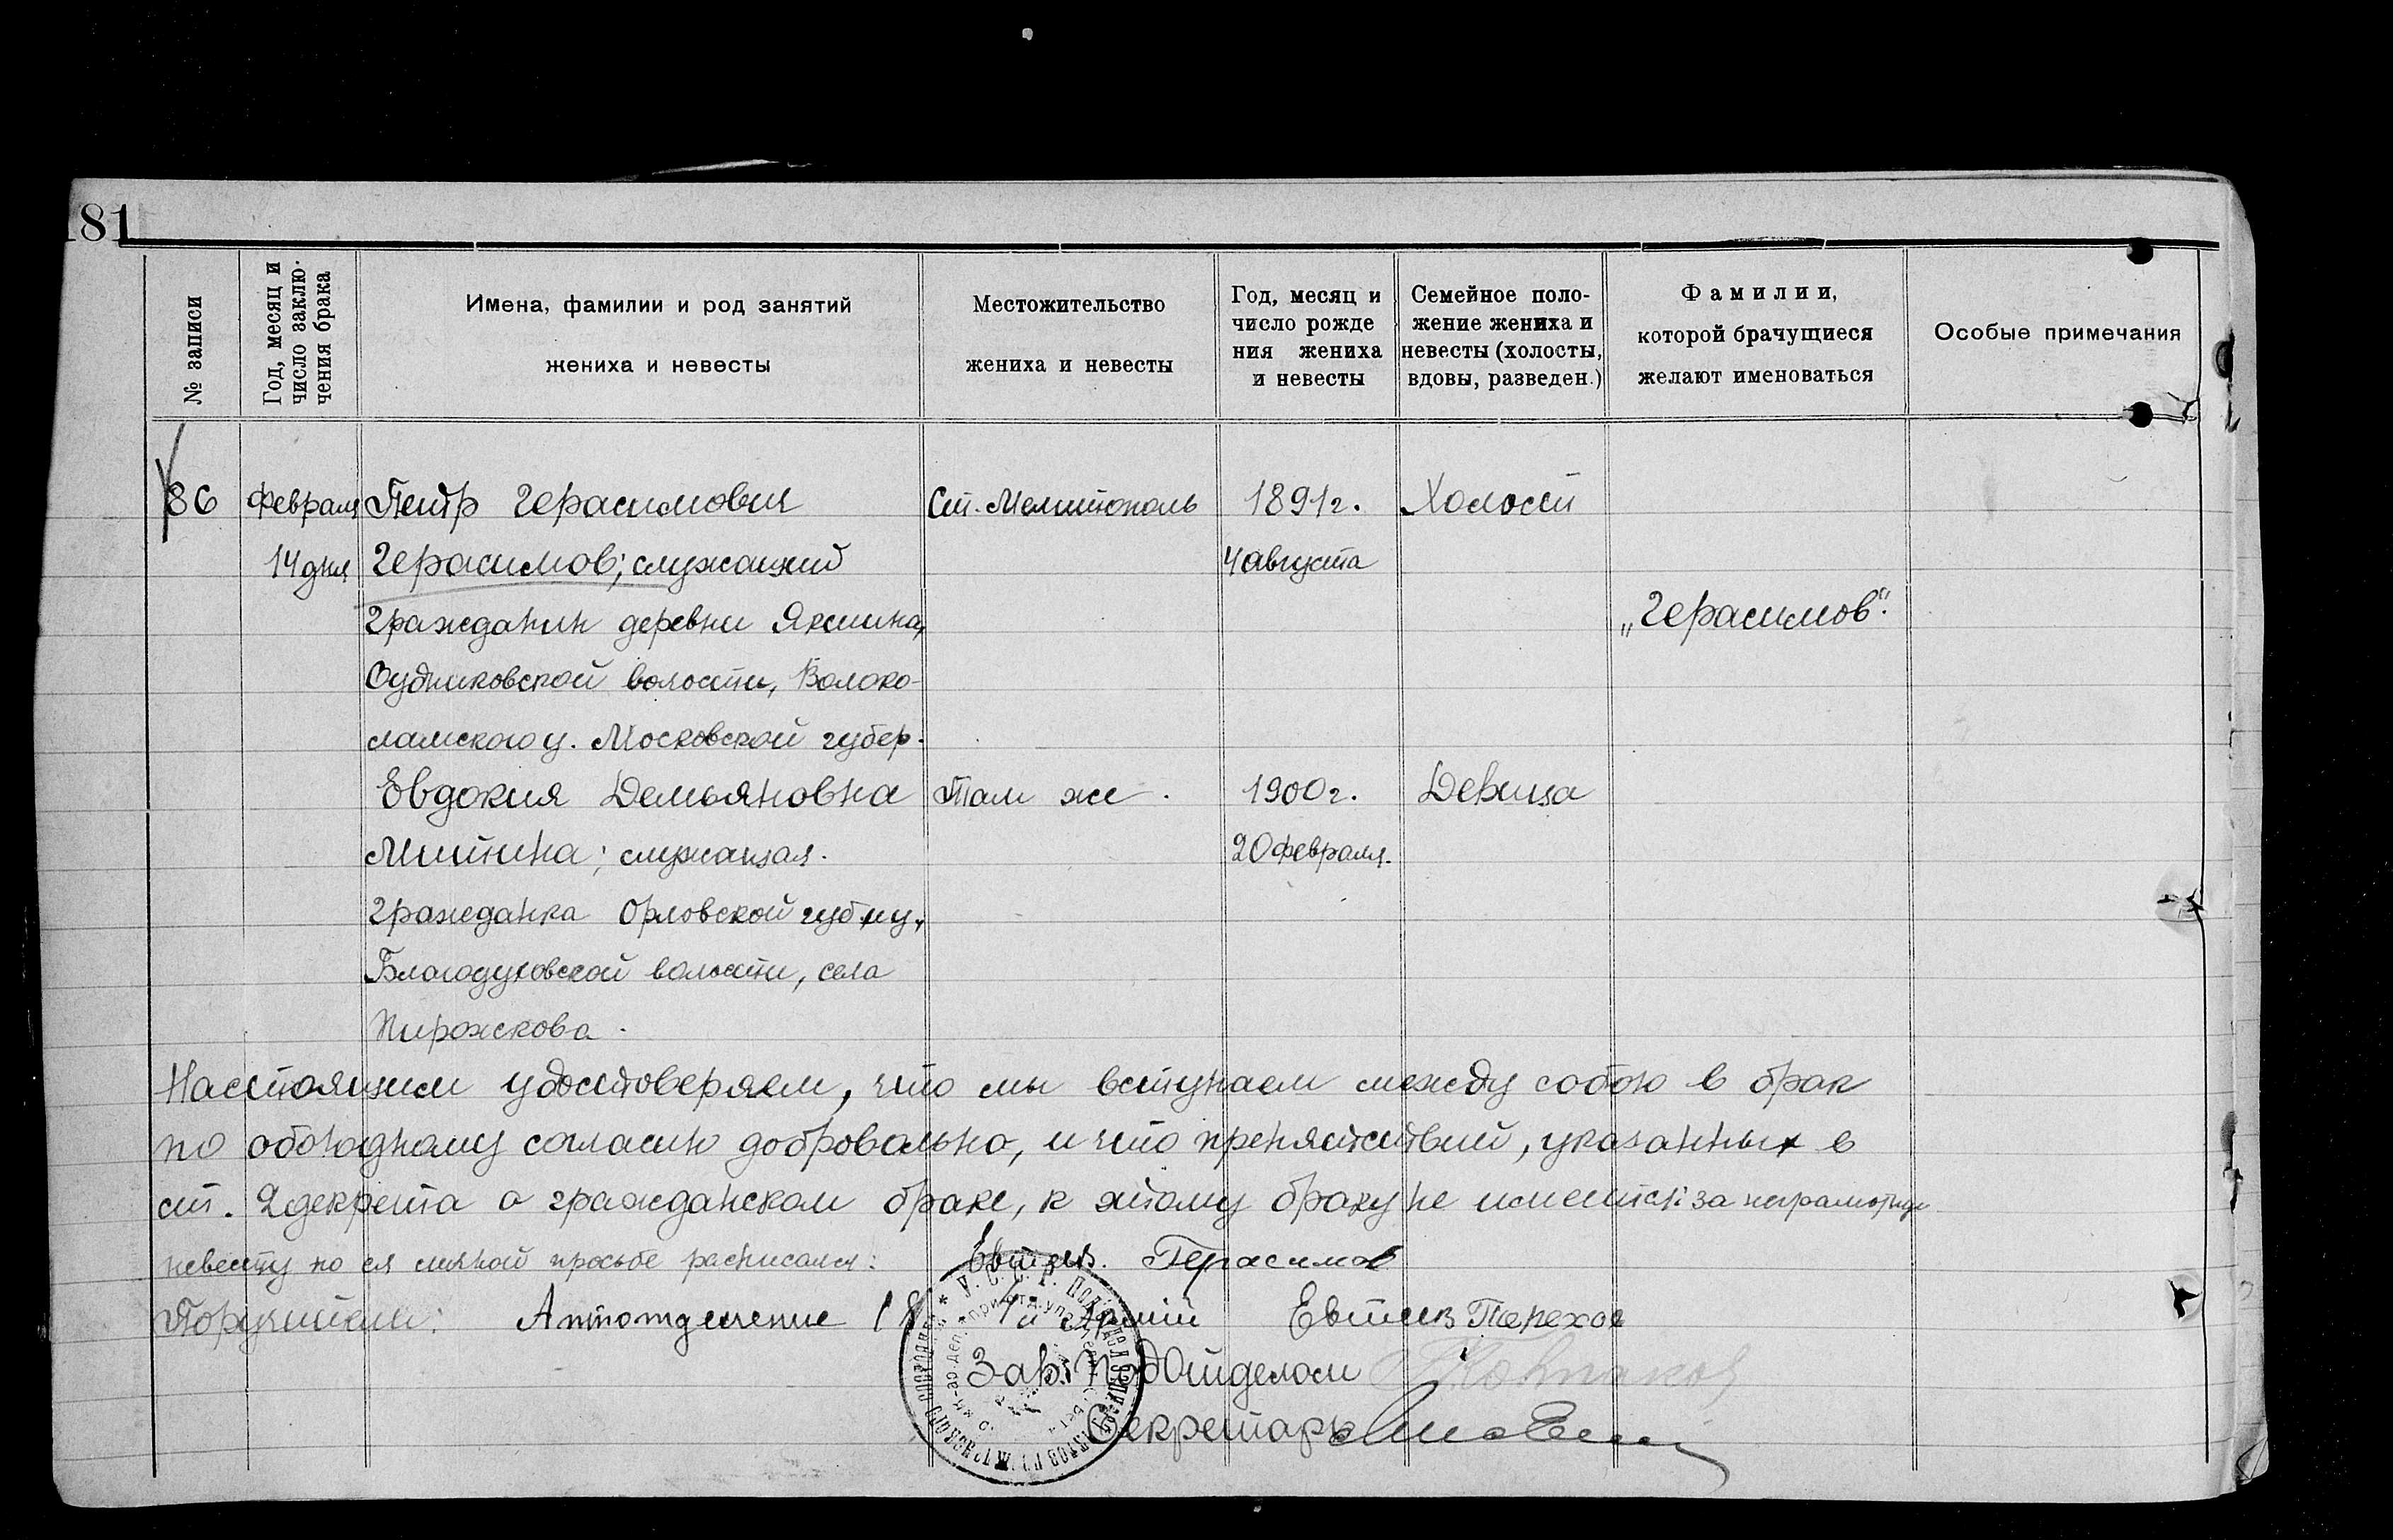 181
№ записи
Год, месяц и
число заклю-
чения брака
Имена, фамилии и род занятий
жениха и невесты
Местожительство
жениха и невесты
Год, месяц и
число рожде
ния жениха
и невесты
Семейное поло-
жение жениха и
невесты (холосты,
вдовы, разведен.)
Фамилии,
которой брачущиеся
желают именоваться
Особые примечания
86 Февраля Петр Герасимович Ст. Мелитополь 1891 г. Холост
14 дня Герасимов; служащий 4 августа
Гражданин деревни Якшина,
„Герасимов".
Судниковской волости, Волоко-
ламского у. Московской губер.
Евдокия Демьяновна Там же. 1900 г. Девица
Митина; служащая. 20 февраля.
Гражданка Орловской губ.
Благодуховской волости, села
Пирожкова.
Настоящим удостоверяем, что мы вступаем между собою в брак
по обоюдному согласию добровально, и что препятствий, указанных в
ст. декрета о гражданском браке, к этому браку не имеется: за неграмотную
невесту по ея личной просьбе расписался: Герасимов
Поручители:
Зав. Подотделом
Секретарь